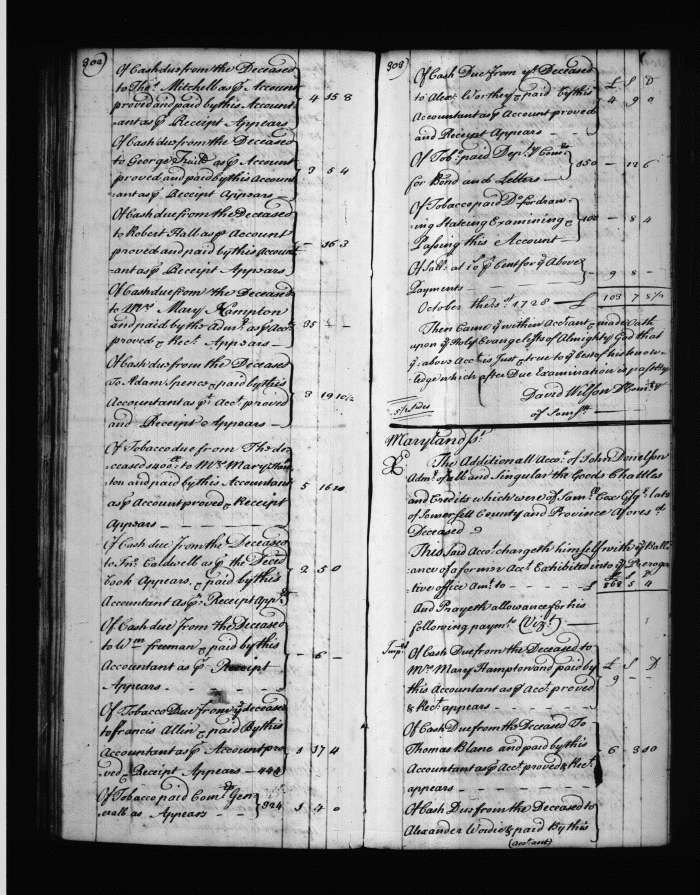 302
Of Cash due from the Deceased
to Thos. Mitchell as ꝑ Account
proved and paid by this Account
-ant as ꝑ Receipt Appears 4 15 8
Of Cash due from the Deceased
to George as ꝑ Account
proved and paid by this Account
-ant as ꝑ Receipt Appears 3 5 4
Of Cash due from the Deceased
to Robert Hall as ꝑ Account
proved and paid by this Account
-ant as ꝑ Receipt Appears - 16 3
Of Cash due from the Deceased
to Mrs Mary Hampton
and paid by the Admr. as ꝑ Acct
proved & Rect. Appears - 35 - -
Of Cash due from the Deceased
To Adam Spence & paid by this
Accountant as ꝑ Acct. proved
and Receipt Appears - 3 19
Of Tobacco due from The de
ceased to Mrs Mary Ham
ton and paid by this Accountant
as ꝑ Account proved & Receipt
Appears - - - - 5 16 10
Of Cash due from the Deceased
to Jno. Caldwell as ꝑ the Deced
Book Appears, & paid by this
Accountant As ꝑ Receipt Apprs 2 5 0
Of Cash due from the Deceased
to Wm freeman & paid by this
Accountant as ꝑ Receipt
Appears - - - - 6 -
Of Tobacco Due from ye deceased
to francis Allen & paid By this
Accountant as ꝑ Account pro
ved & Receipt Appears - 444 1 17 4
Of Tobacco paid Comy Gen
erall as Appears - - 824 3 4 0
303
Of Cash Due from ye Deceased
to Alexr. Worthey & paid by this
Accountant as ꝑ Account proved
and Receipt Appears - -
£ S D
4 9 0
Of Tob: paid Depty Comrs
for Bond and Letters - - 350 - 12 6
Of Tobacco paid Do for draw-
ing Stateing Examining &
Passing this Account - 100 - 8 4
Of Sall: at 10 ꝑ Cent for ye Above
Payments - - - - 9 8 -
October the 1st 1728 - £ 103 7 8½
Then Came ye within Acctant & made Oath
upon ye Holy Evangelists of Almighty God that
ye above Acct is Just & true to ye best of his know-
ledge which after Due Examination is past by
David Wilson Dcomry
of Somst
Sides
Maryland sst.
The Additionall Acct. of John Donelson
Admr. of all and Singular the Goods Chattles
and Credits which were of Saml. Cox Esqr. late
of Somersett County and Province Afores d
Deceased
This said Acct. chargeth himself with ye Ball
ance of a former Acct Exhibited into ye Preroga
tive office Amt. to - - - £
£ S D
868 5 4
And Prayeth allowance for his
following paymts (Vizt.)
Imprs
Of Cash Due from the Deceased to
Mrs Mary Hampton and paid by
this Accountant as ꝑ Acct. proved
& Rect. appears - - - -
£ S D
9 - -
Of Cash Due from the Deceased To
Thomas Blane and paid by this
Accountant as ꝑ Acct. proved & Rect.
appears - - - - 6 3 10
Of Cash Due from the Deceased to
Alexander & paid By this
(Acct.ant)